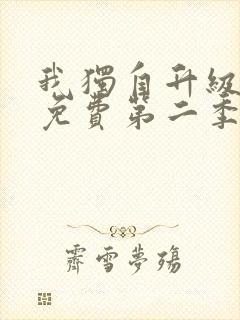 我獨自升級
免費第二季
霽雪夢殤